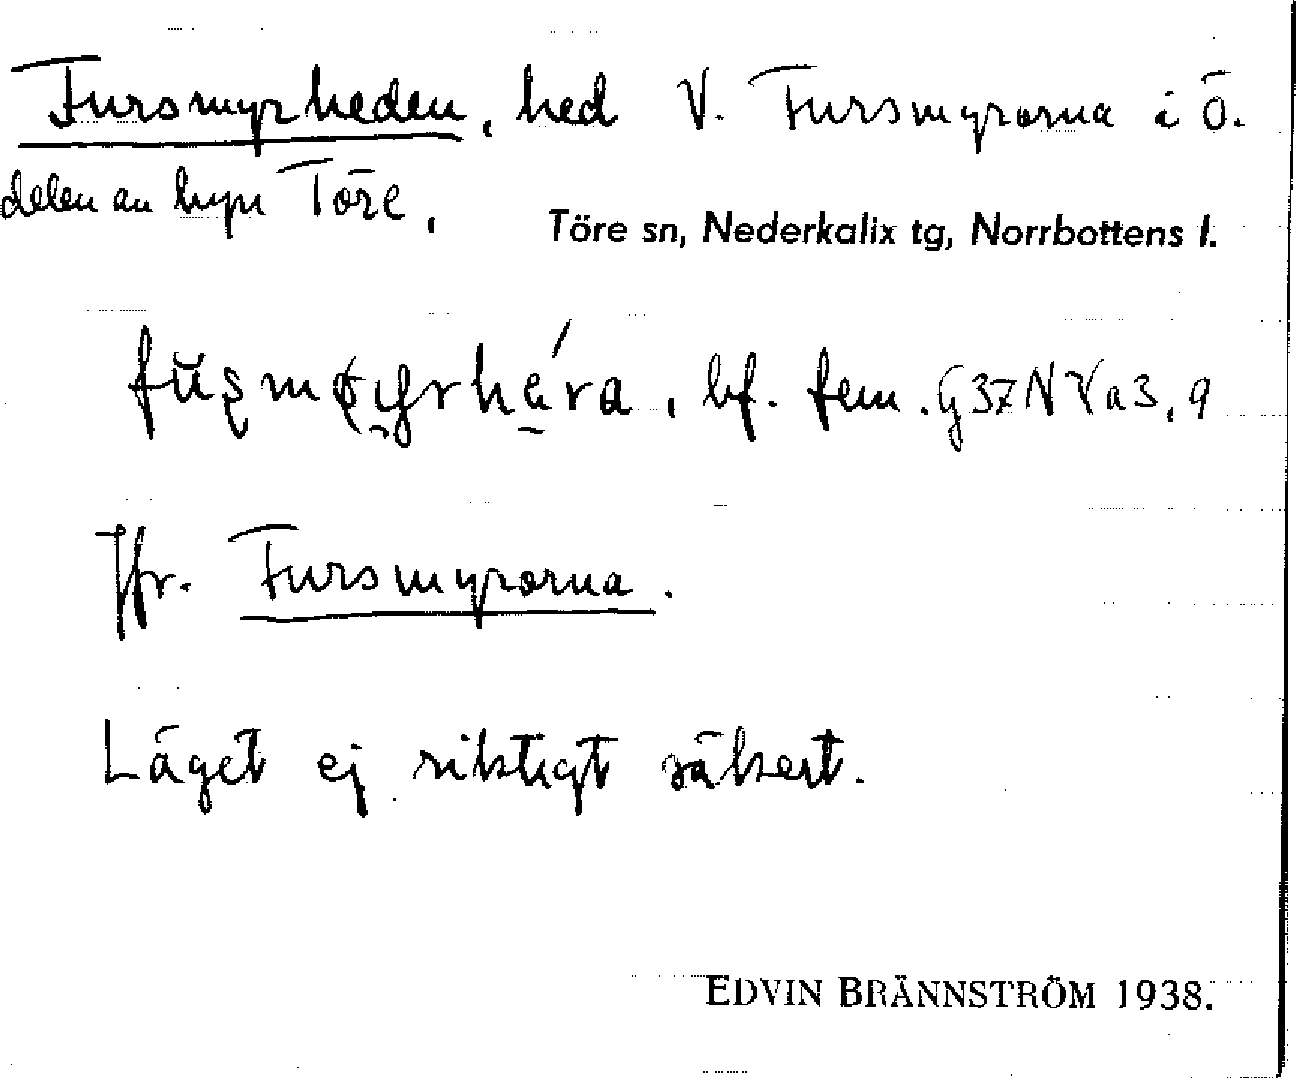 Fursmyrheden, hed V. Fursmyrorna i Ö.
delen av byn Töre.
Töre sn, Nederkalix tg, Norrbottens l.
bf. fem. G37NVa3,9
Jfr. Fursmyrorna.
Läget ej riktigt säkert.
EDVIN BRÄNNSTRÖM 1938.